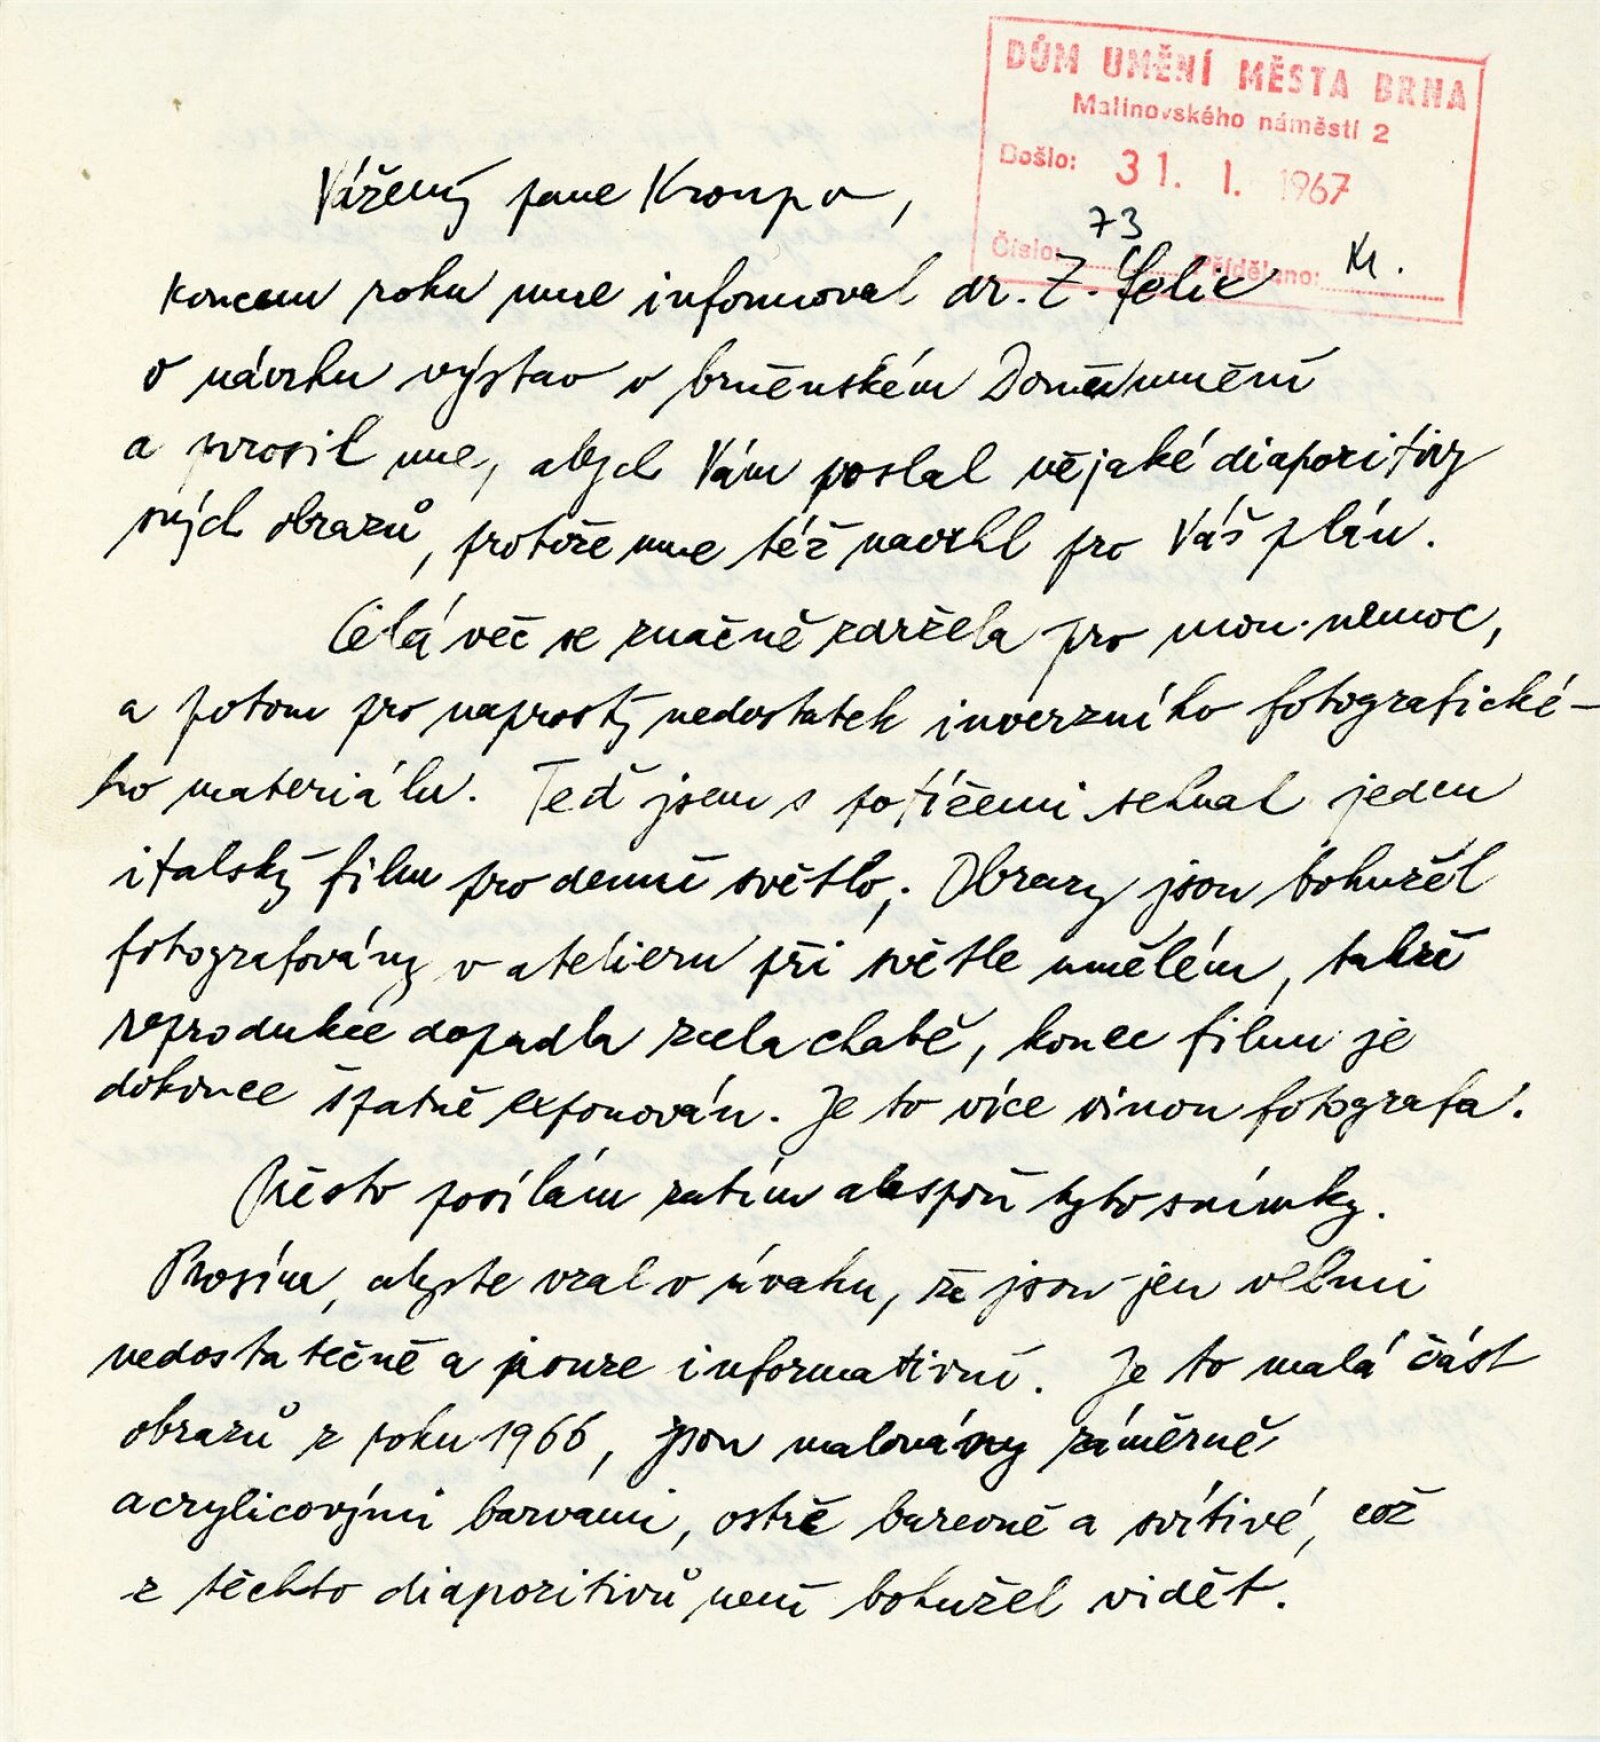 DŮM UMĚNÍ MĚSTA BRNA
Malinovského náměstí 2
Došlo: 31. 1. 1967
Číslo: 73 Přiděleno: Kr.
Vážený pane Kroupo,
koncem roku mne informoval dr. Z. Felix
o návrhu výstav v brněnském Domě umění
a prosil mne, abych Vám poslal nějaké diapozitivy
svých obrazů, protože mne též navrhl pro Váš plán.
Celá věc se značně zdržela pro mou nemoc,
a potom pro naprostý nedostatek inverzního fotografické-
ho materiálu. Teď jsem s potížemi sehnal jeden
italský film pro denní světlo; Obrazy jsou bohužel
fotografovány v atelieru při světle umělém, takže
reprodukce dopadla zcela chabě, konec filmu je
dokonce špatně exponován. Je to více vinou fotografa.
Přesto posílám zatím alespoň tyto snímky.
Prosím, abyste vzal v úvahu, že jsou jen velmi
nedostatečné a pouze informativní. Je to malá část
obrazů z roku 1966, jsou malovány záměrně
acrylicovými barvami, ostře barevné a svítivé, což
z těchto diapozitivů není bohužel vidět.